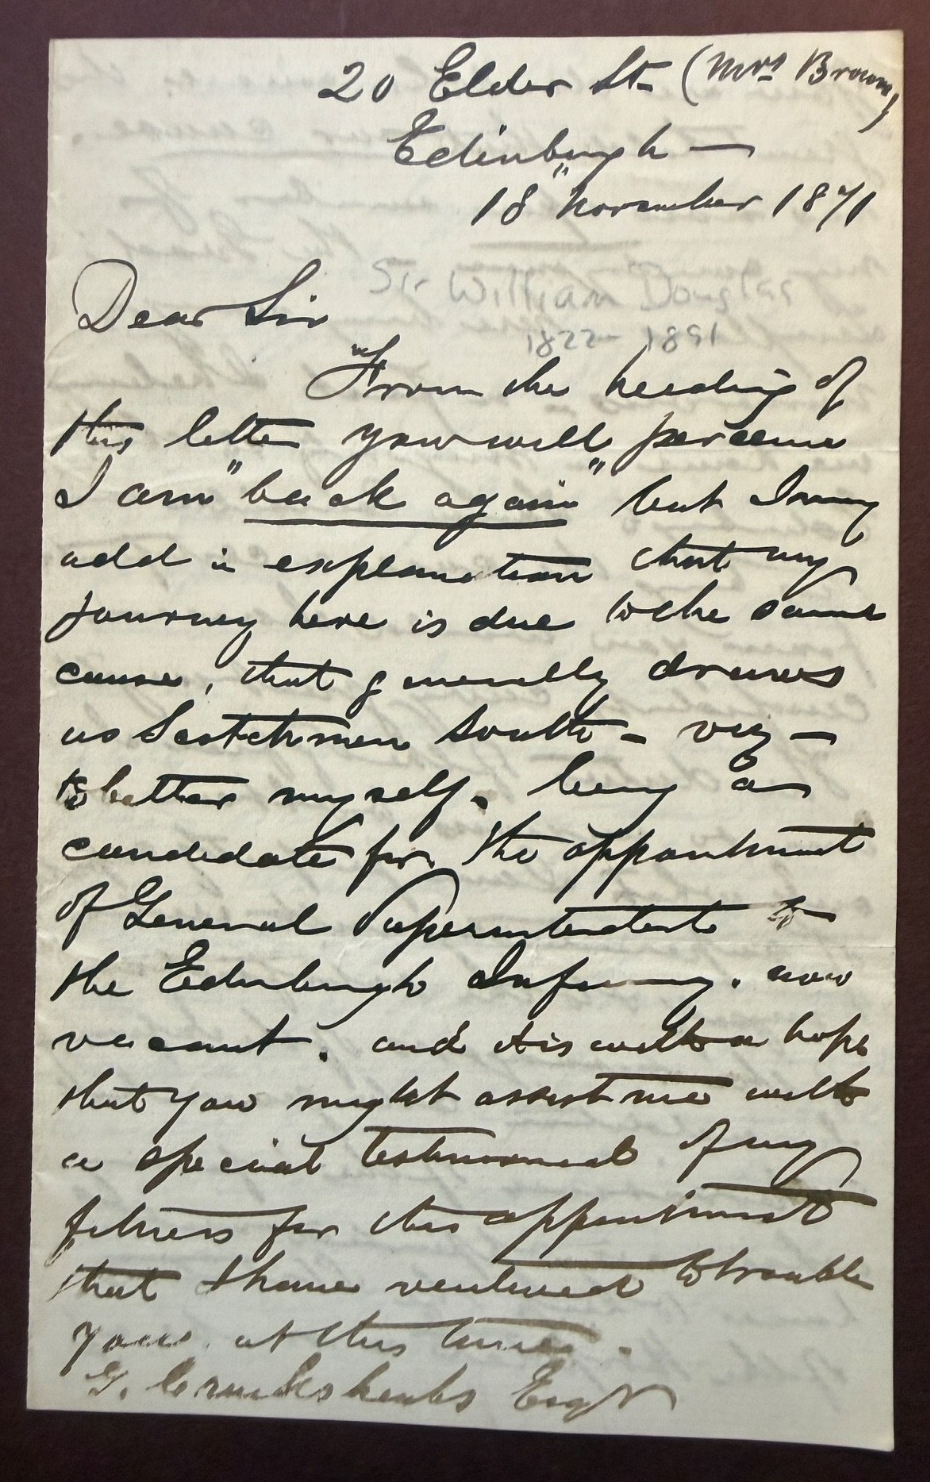 20 Elder St (Mrs Brown)
Edinburgh —
18" November 1871
Sir William Douglas
Dear Sir
1822 - 1891
From the heading of
this letter you will perceive
I am "back again" but I may
add in explanation that my
journey here is due to the same
cause, that generally draws
us Scotchmen South — viz —
to better myself. being a
candidate for the appointment
of General Superintendent to
the Edinburgh Infirmary. now
vacant. and it is with a hope
that you might assist me with
a special testimonial of my
fitness for this appointment
that I have ventured to trouble
you at this time.
G. Cruikshanks Esqr